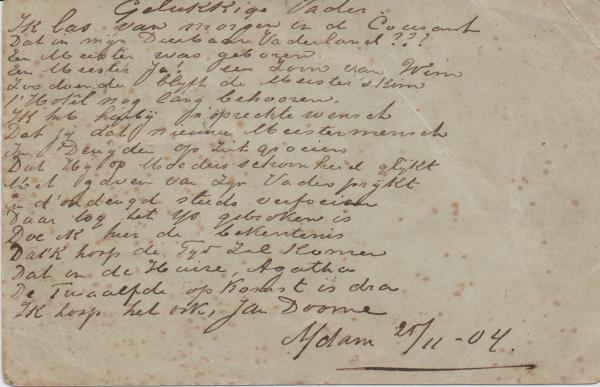 Gelukkige Vader.
Ik las van morgen in d Courant
Dat in mijn Dierbaar Vaderland???
Een Meester was geboren.
Een Meester Ja! een Zoon van Wim
Zoodoende blijft de Meester's
t'Hotel nog lang behooren.
Ik heb hierbij oprechte wensch
Dat jij dat nieuwe Meestermensch
In Deugden op zult groeien
Dat Hij op Moeders schoonheid glijkt
Met gaven van Zijn Vader prijkt
En d'ondeugd steeds
Daar tog het IJs gebroken is
Doe ik hier de bekentenis
Dat ik hoop de Tijd Zal Komen
Dat in de Huize, Agatha
De Twaalfde op komst is dra
Ik hoop het ook, Jan Doorne
A/dam 25/11 - 04.